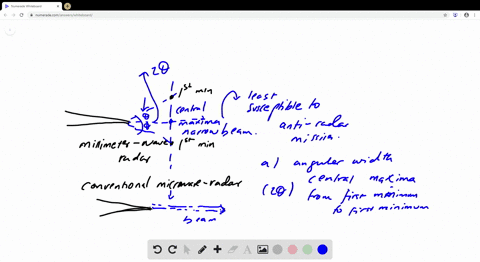 Numerade Whiteboard
numerade.com/answers/whiteboard/
2θ
1st min
central
maxima
narrow beam.
1st min
θ
θ
millimeter-wave
radar
conventional microwave-radar
beam
least
susceptible to
anti-radar
a) angular width
central maxima
(2θ) from first minimum
to first minimum